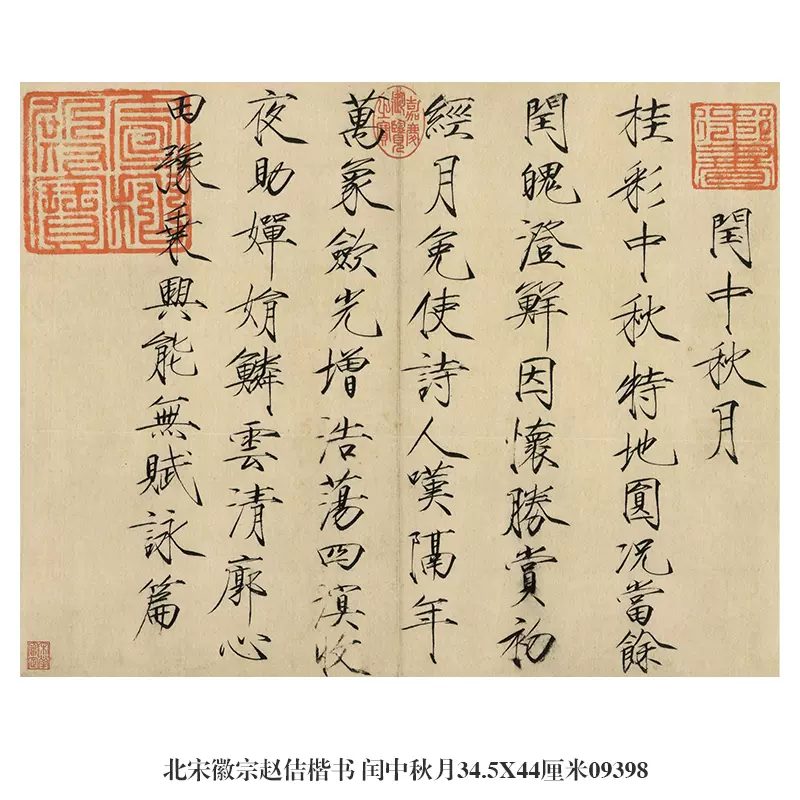 閏中秋月
桂彩中秋特地圓况當餘
閏魄澄鮮因懷勝賞初
經月免使詩人嘆隔年
萬象歛光增浩蕩四溟收
夜助嬋娟鱗雲清廓心
田豫乗興能無賦詠篇
嘉慶御覽之寶
北宋徽宗赵佶楷书 闰中秋月34.5X44厘米09398